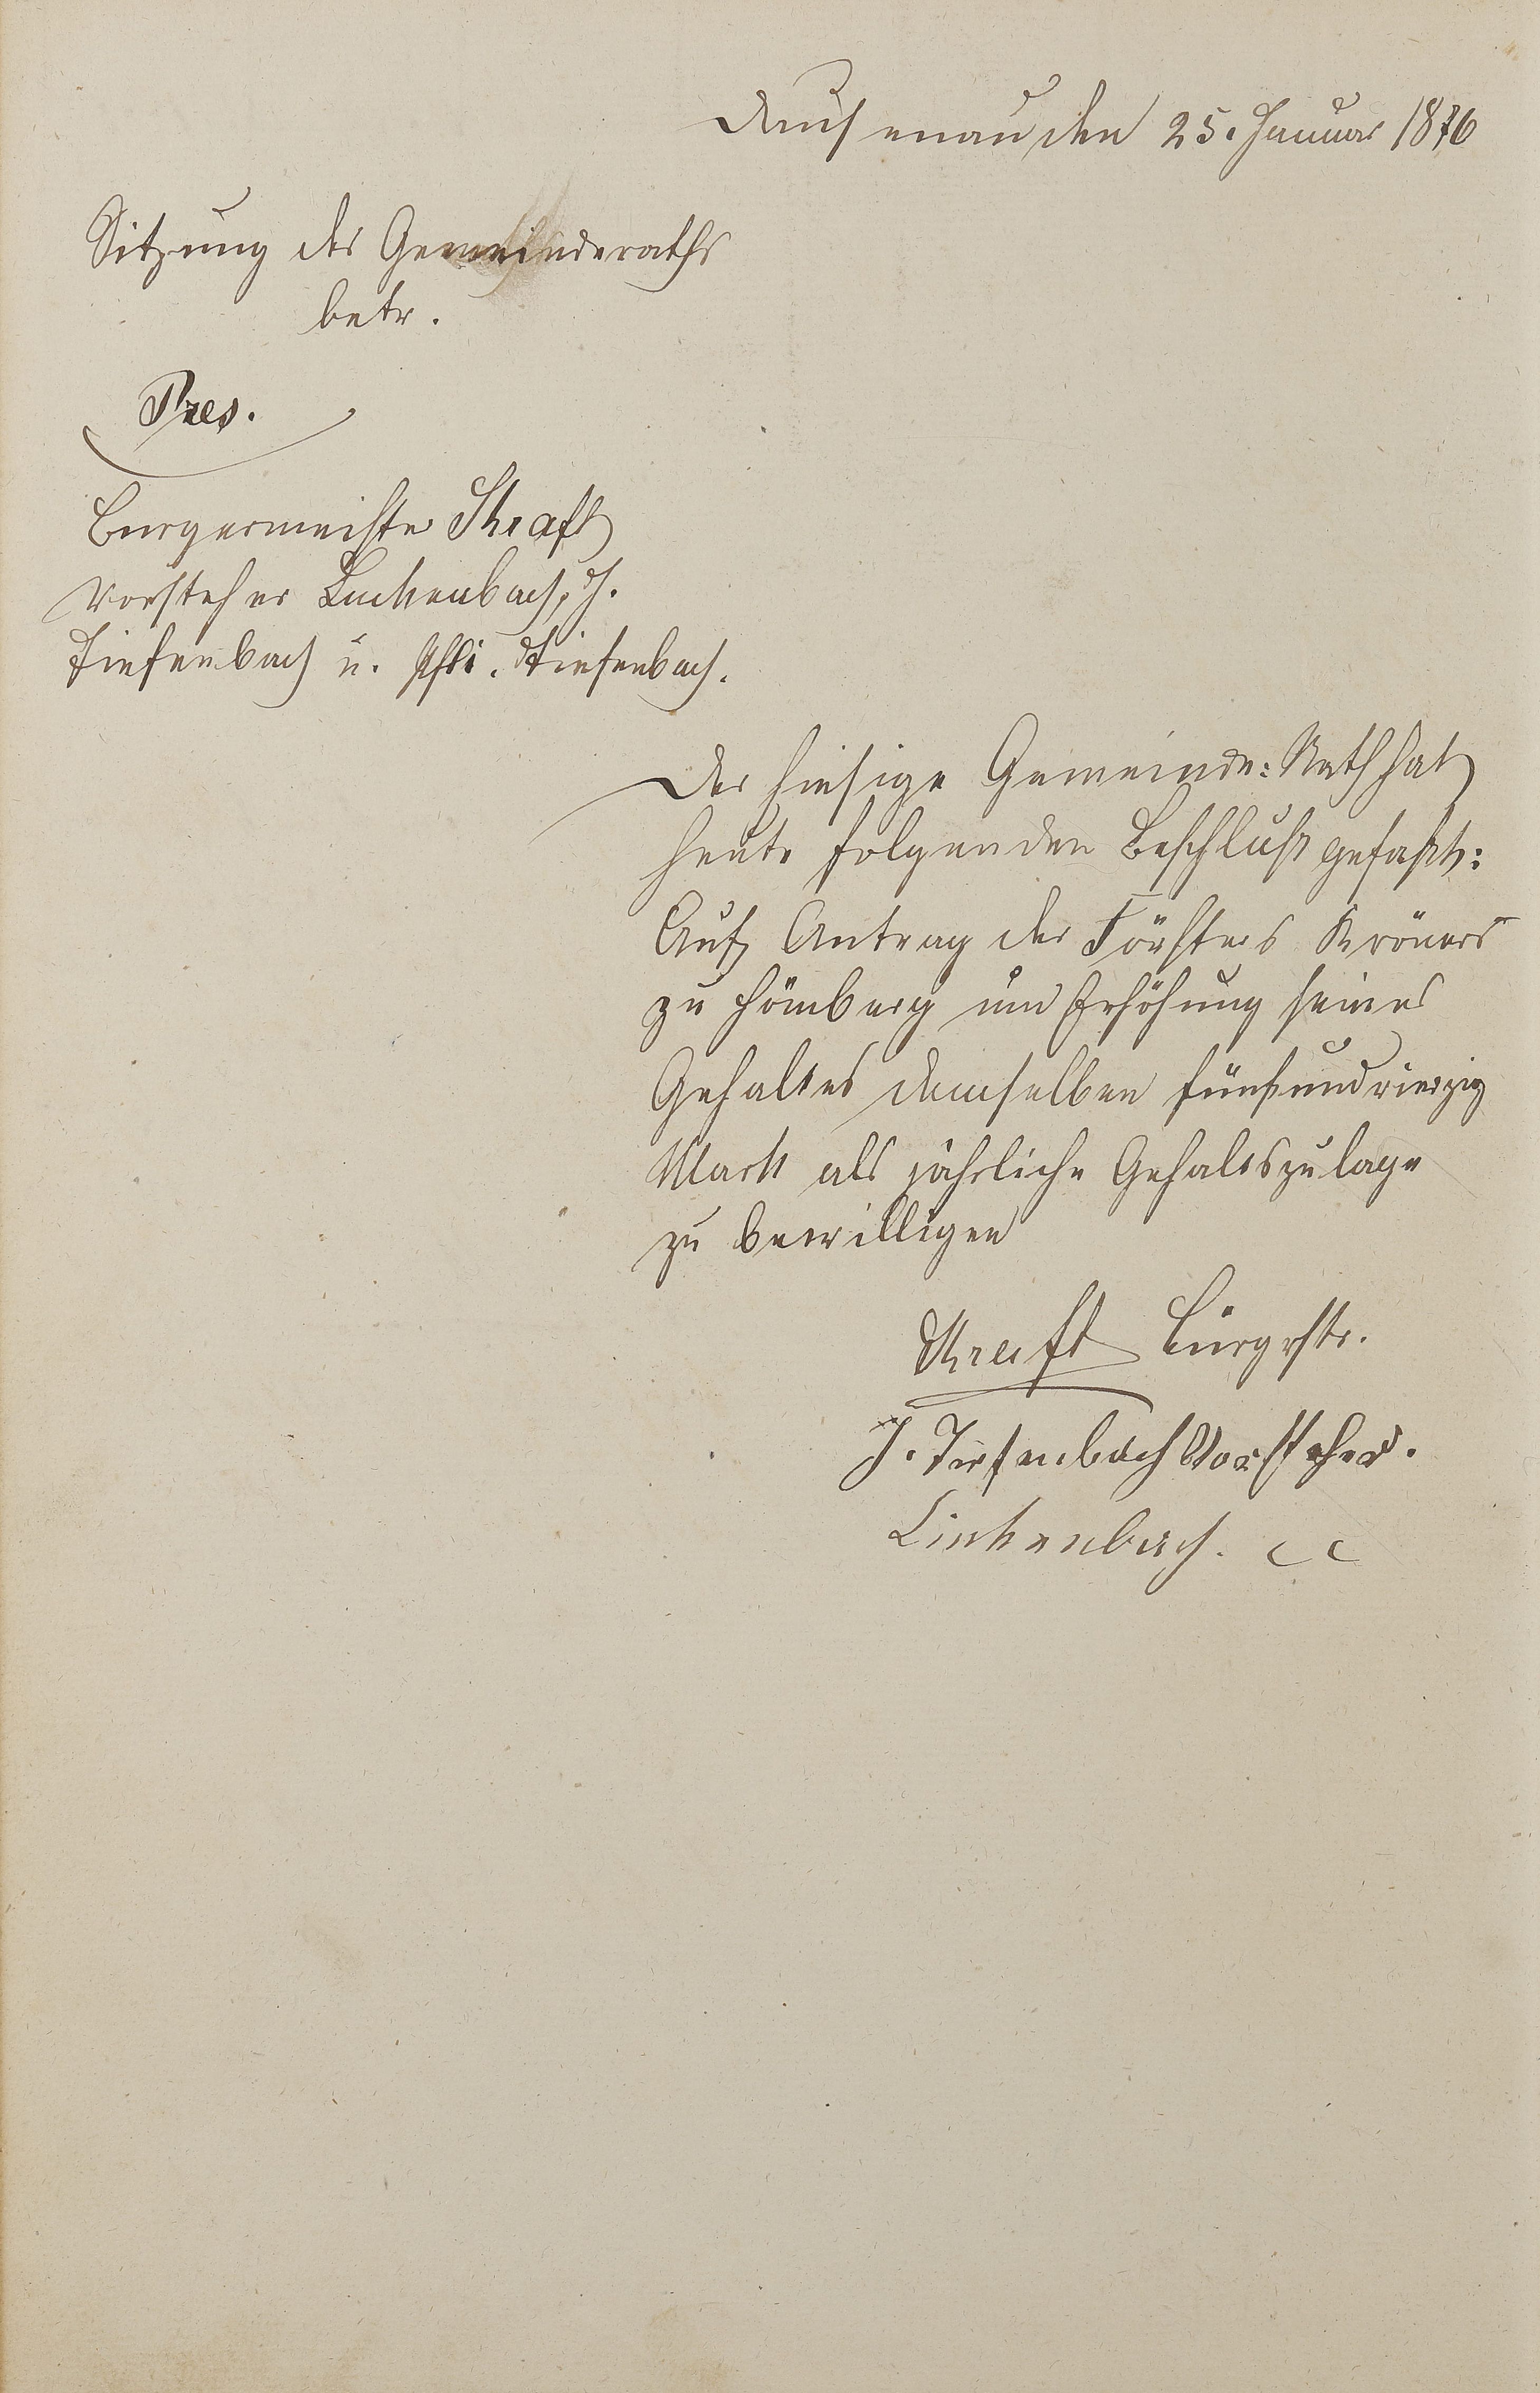 Dausenau den 25. Januar 1876
Sitzung des Gemeinderaths
betr.
Pres.
Bürgermeister Kraft
Vorsteher Linkenbach, J.
Tiefenbach u. Phli. Tiefenbach.
Der hiesige Gemeinde: Rath hat
heute folgenden Beschluß gefaßt:
Auf Antrag des Försters Kröners
zu Hömberg um Erhöhung seines
Gehaltes demselben fünfundvierzig
Mark als jährliche Gehaltszulage
zu bewilligen
Kraft Bürgrstr.
J. Tiefenbach Vorsteher.
Linkenbach.